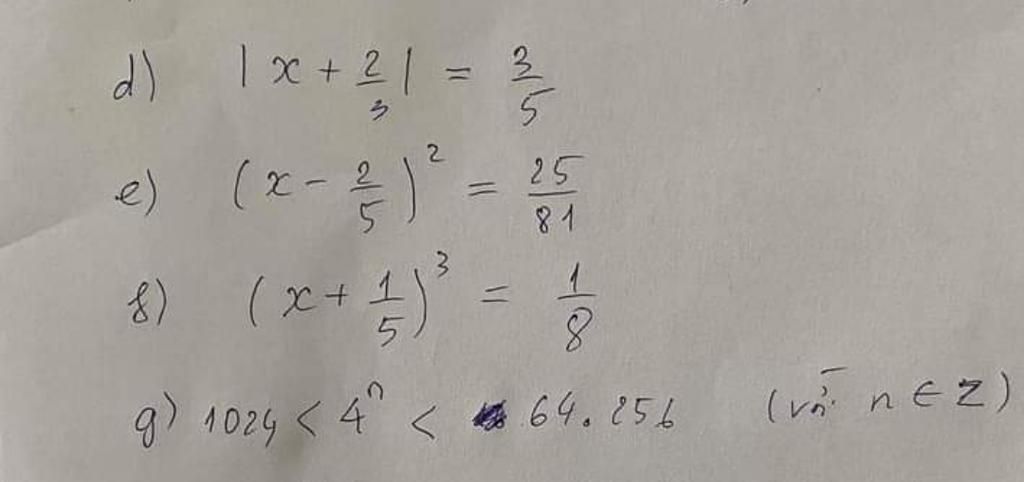 d) |x + 2/3| = 3/5
e) (x - 2/5)² = 25/81
f) (x + 1/5)³ = 1/8
g) 1024 < 4ⁿ < 64.256 (với n ∈ Z)